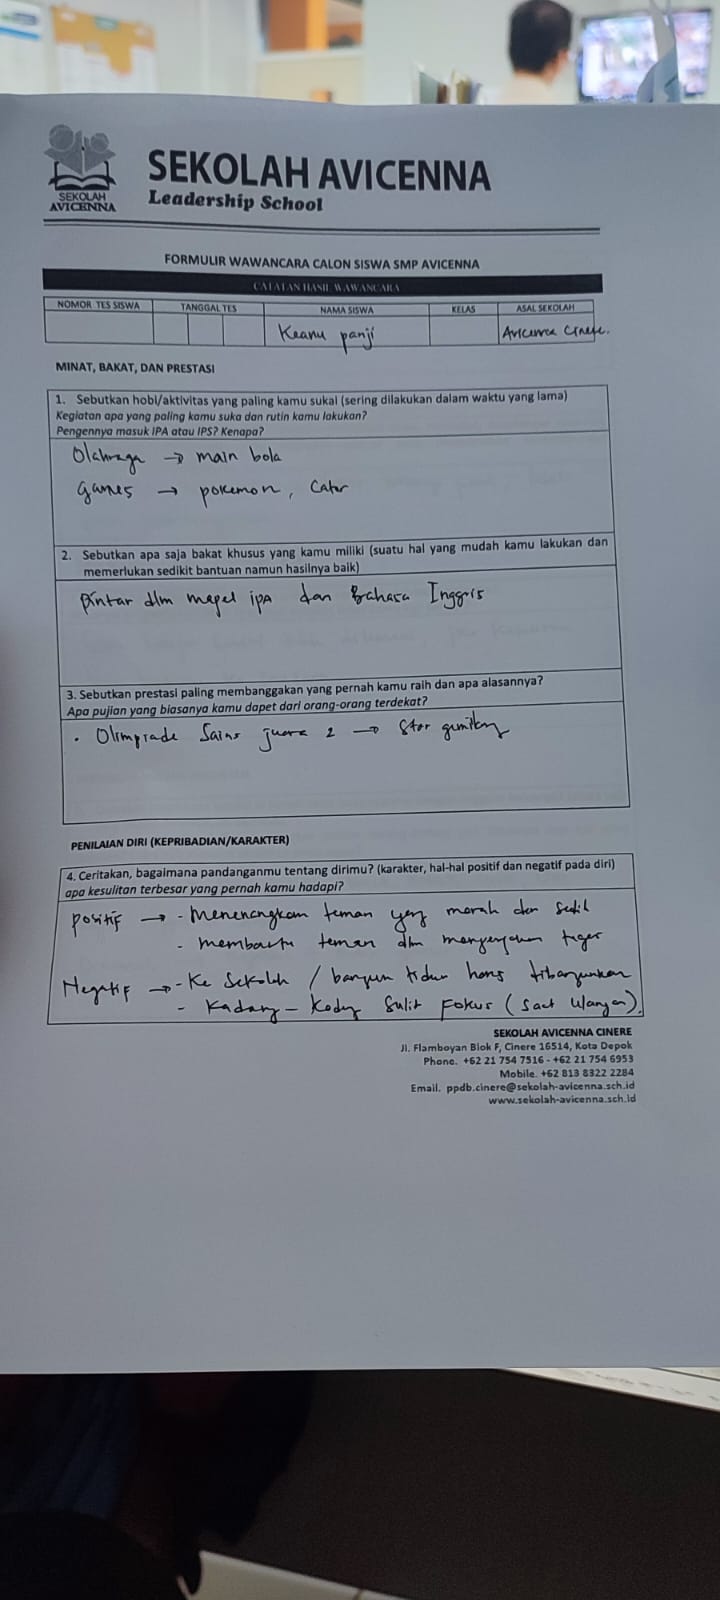 SEKOLAH AVICENNA
Leadership School
SEKOLAH
AVICENNA
FORMULIR WAWANCARA CALON SISWA SMP AVICENNA
CATATAN HASIL WAWANCARA
NOMOR TES SISWA TANGGAL TES NAMA SISWA KELAS ASAL SEKOLAH
Keanu panji Avicenna Cinere.
MINAT, BAKAT, DAN PRESTASI
1. Sebutkan hobi/aktivitas yang paling kamu sukai (sering dilakukan dalam waktu yang lama)
Kegiatan apa yang paling kamu suka dan rutin kamu lakukan?
Pengennya masuk IPA atau IPS? Kenapa?
Olahraga → main bola
games → pokemon, Catur
2. Sebutkan apa saja bakat khusus yang kamu miliki (suatu hal yang mudah kamu lakukan dan
memerlukan sedikit bantuan namun hasilnya baik)
Pintar dlm mapel IPA dan Bahasa Inggris
3. Sebutkan prestasi paling membanggakan yang pernah kamu raih dan apa alasannya?
Apa pujian yang biasanya kamu dapet dari orang-orang terdekat?
• Olimpiade Sains juara 2 →
PENILAIAN DIRI (KEPRIBADIAN/KARAKTER)
4. Ceritakan, bagaimana pandanganmu tentang dirimu? (karakter, hal-hal positif dan negatif pada diri)
apa kesulitan terbesar yang pernah kamu hadapi?
positif → - Menenangkan teman yang marah dan sedih
- membantu teman dlm mengerjakan tugas
Negatif → - Ke Sekolah / bangun tidur harus dibangunkan
- Kadang - Kadang Sulit Fokus (saat Ulangan).
SEKOLAH AVICENNA CINERE
Jl. Flamboyan Blok F, Cinere 16514, Kota Depok
Phone. +62 21 754 7516 - +62 21 754 6953
Mobile. +62 813 8322 2284
Email. ppdb.cinere@sekolah-avicenna.sch.id
www.sekolah-avicenna.sch.id